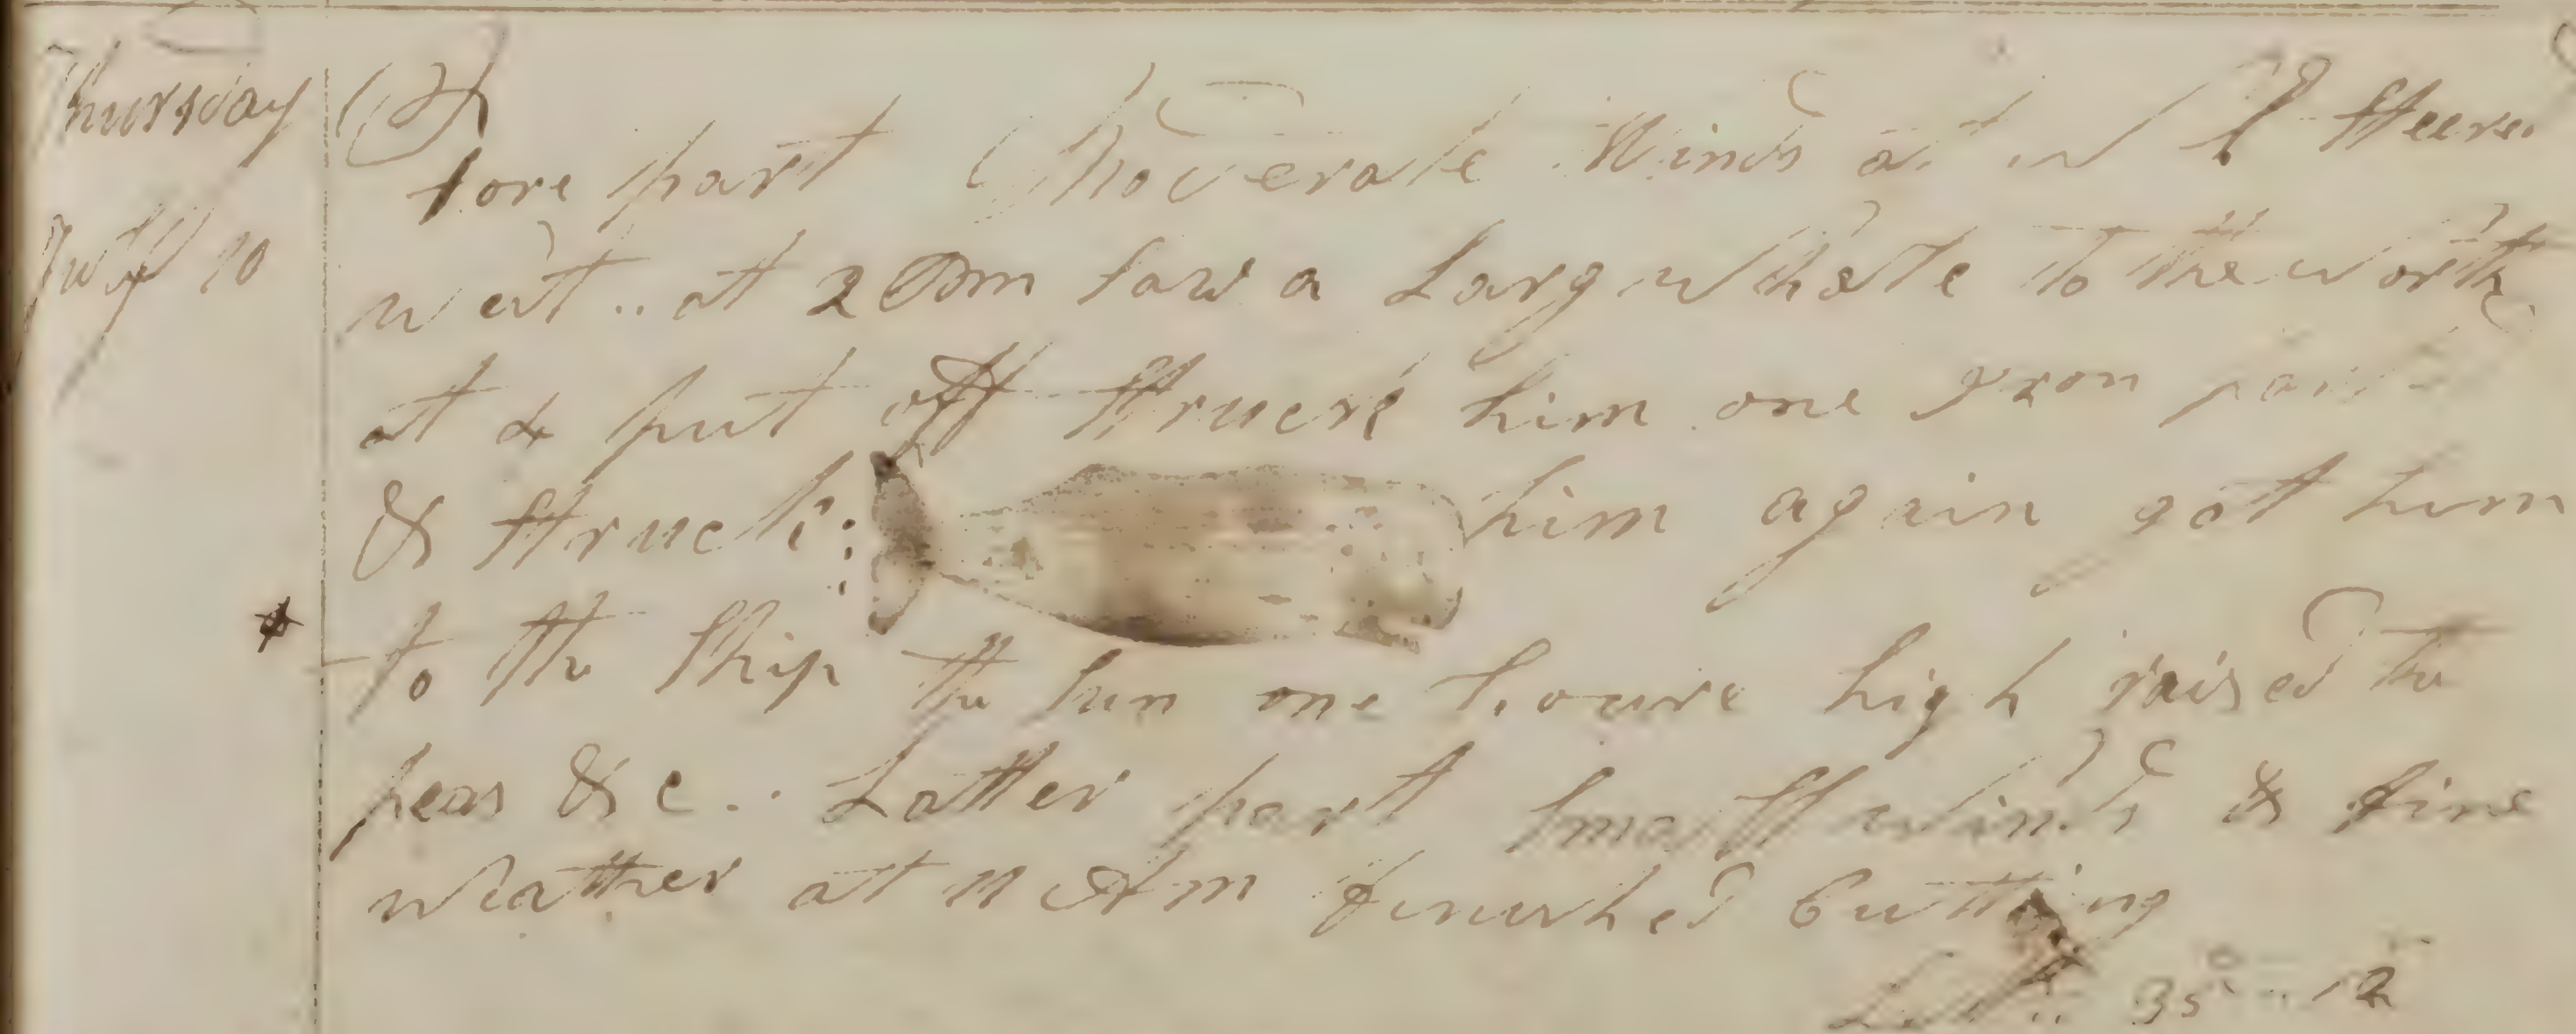 Thursday
July 10
fore part Moderate Winds at w Steered
west .. at 2 Pm saw a Larg whale to the
at & put off struck him one Iron
& struck : him again got him
to the Ship the sun one houre high raised the
peas & c .. Latter part small winds & fine
Weather at 11 Am finished Cutting
Lat .. 35 .. 12